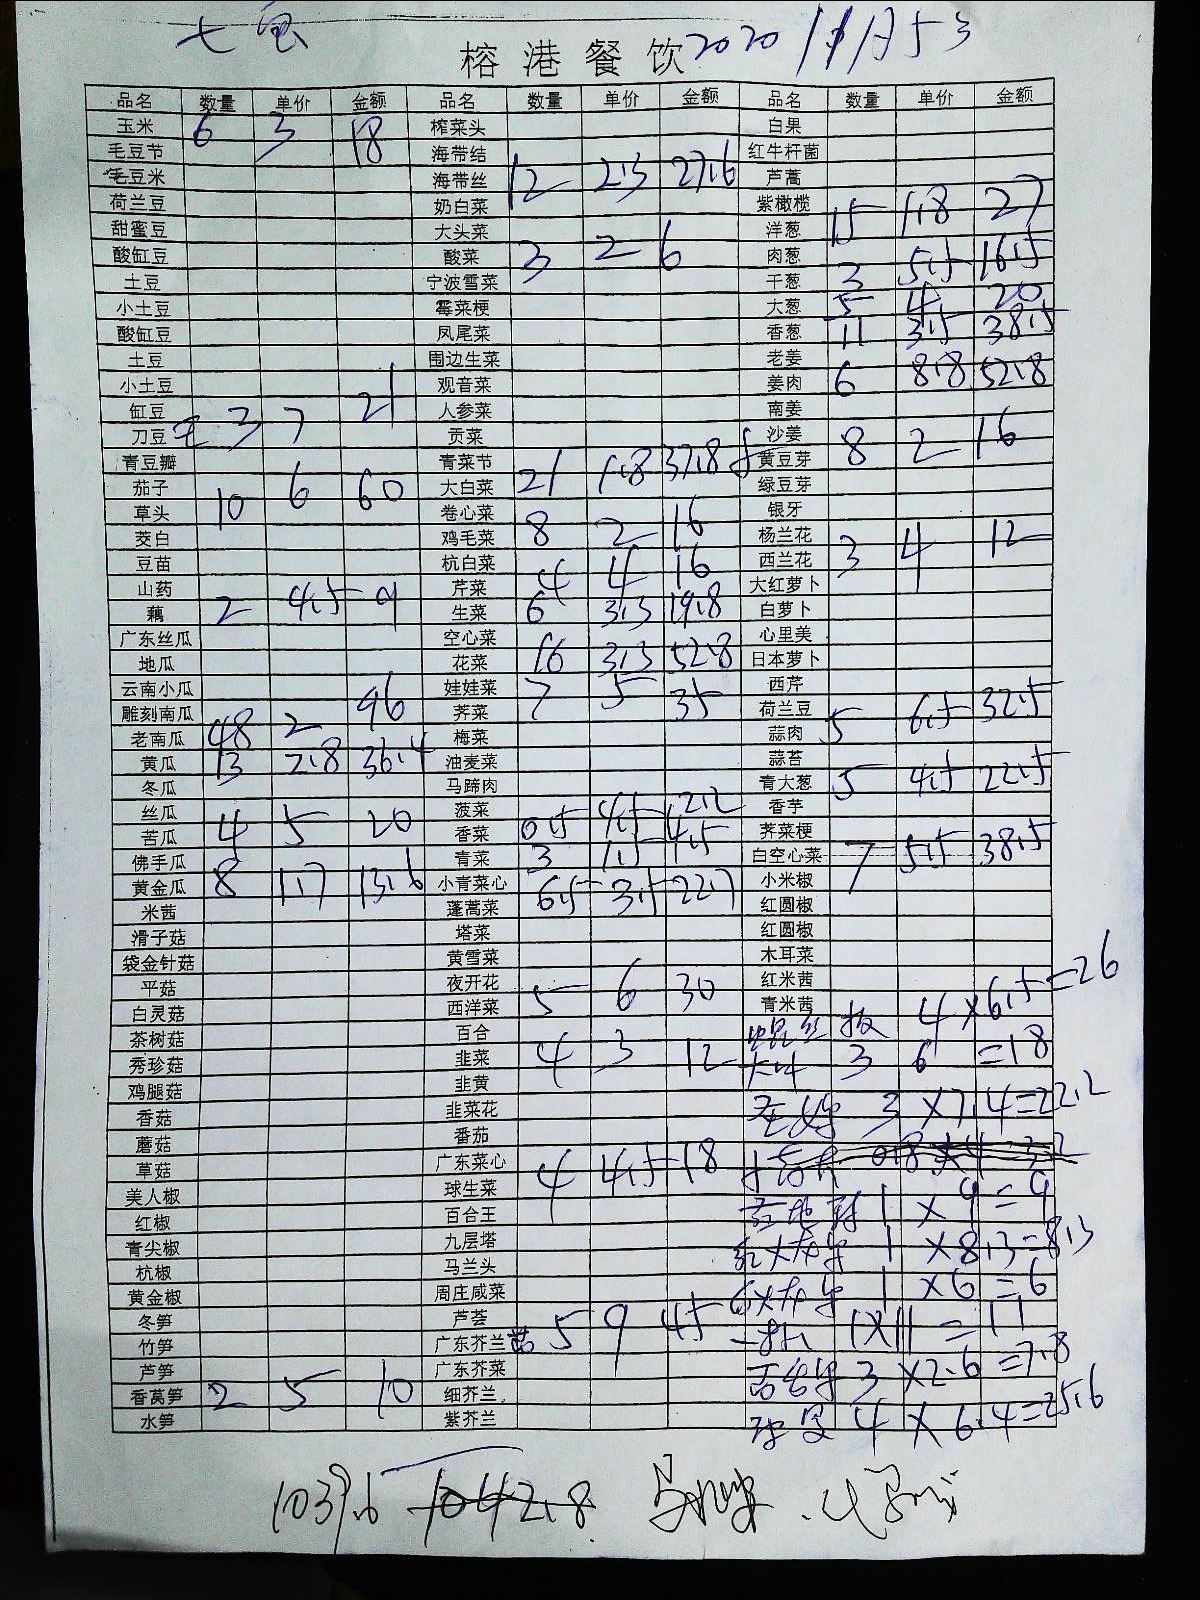 七宝
榕港餐饮 2020 11月5号
品名 数量 单价 金额 品名 数量 单价 金额 品名 数量 单价 金额
玉米 6 3 18 榨菜头 白果
毛豆节 海带结 红牛杆菌
毛豆米 海带丝 12 2.3 27.6 芦蒿
荷兰豆 奶白菜 紫橄榄
甜蜜豆 大头菜 洋葱 15 1.8 27
酸缸豆 酸菜 3 2 6 肉葱
土豆 宁波雪菜 干葱 3 5.5 16.5
小土豆 霉菜梗 大葱 5 4 20
酸缸豆 凤尾菜 香葱 11 3.5 38.5
土豆 围边生菜 老姜
小土豆 观音菜 姜肉 6 8.8 52.8
缸豆 人参菜 南姜
刀豆 毛 3 7 21 贡菜 沙姜
青豆瓣 青菜节 黄豆芽 8 2 16
茄子 大白菜 21 1.8 37.8 绿豆芽
草头 10 6 60 卷心菜 银牙
茭白 鸡毛菜 8 2 16 杨兰花
豆苗 杭白菜 西兰花 3 4 12
山药 芹菜 4 4 16 大红萝卜
藕 2 4.5 9 生菜 6 3.3 19.8 白萝卜
广东丝瓜 空心菜 心里美
地瓜 花菜 16 3.3 52.8 日本萝卜
云南小瓜 娃娃菜 7 5 35 西芹
雕刻南瓜 荠菜 荷兰豆
老南瓜 48 2 96 梅菜 蒜肉 5 6.5 32.5
黄瓜 13 2.8 36.4 油麦菜 蒜苔
冬瓜 马蹄肉 青大葱 5 4.5 22.5
丝瓜 菠菜 香芋
苦瓜 4 5 20 香菜 0.5 4.5 2.2 荠菜梗
佛手瓜 青菜 3 1.5 4.5 白空心菜 7 5.5 38.5
黄金瓜 8 1.7 13.6 小青菜心 6.5 3.5 22.7 小米椒
米茜 蓬蒿菜 红圆椒
滑子菇 塔菜 红圆椒
袋金针菇 黄雪菜 木耳菜
平菇 夜开花 红米茜
白灵菇 西洋菜 5 6 30 青米茜
茶树菇 百合 丝 板 4×6.5=26
秀珍菇 韭菜 4 3 12 大叶 3 6 =18
鸡腿菇 韭黄
香菇 韭菜花 3×7.4=22.2
蘑菇 番茄
草菇 广东菜心 4 4.5 18
美人椒 球生菜
红椒 百合王 1×9=9
青尖椒 九层塔 红火龙果 1×8.3=8.3
杭椒 马兰头
黄金椒 周庄咸菜 白火龙果 1×6=6
冬笋 芦荟
竹笋 广东芥兰苗 5 9 45 1×11=11
芦笋 广东芥菜 3×2.6=7.8
香莴笋 2 5 10 细芥兰
水笋 紫芥兰 4×6.4=25.6
1039.6 1042.8